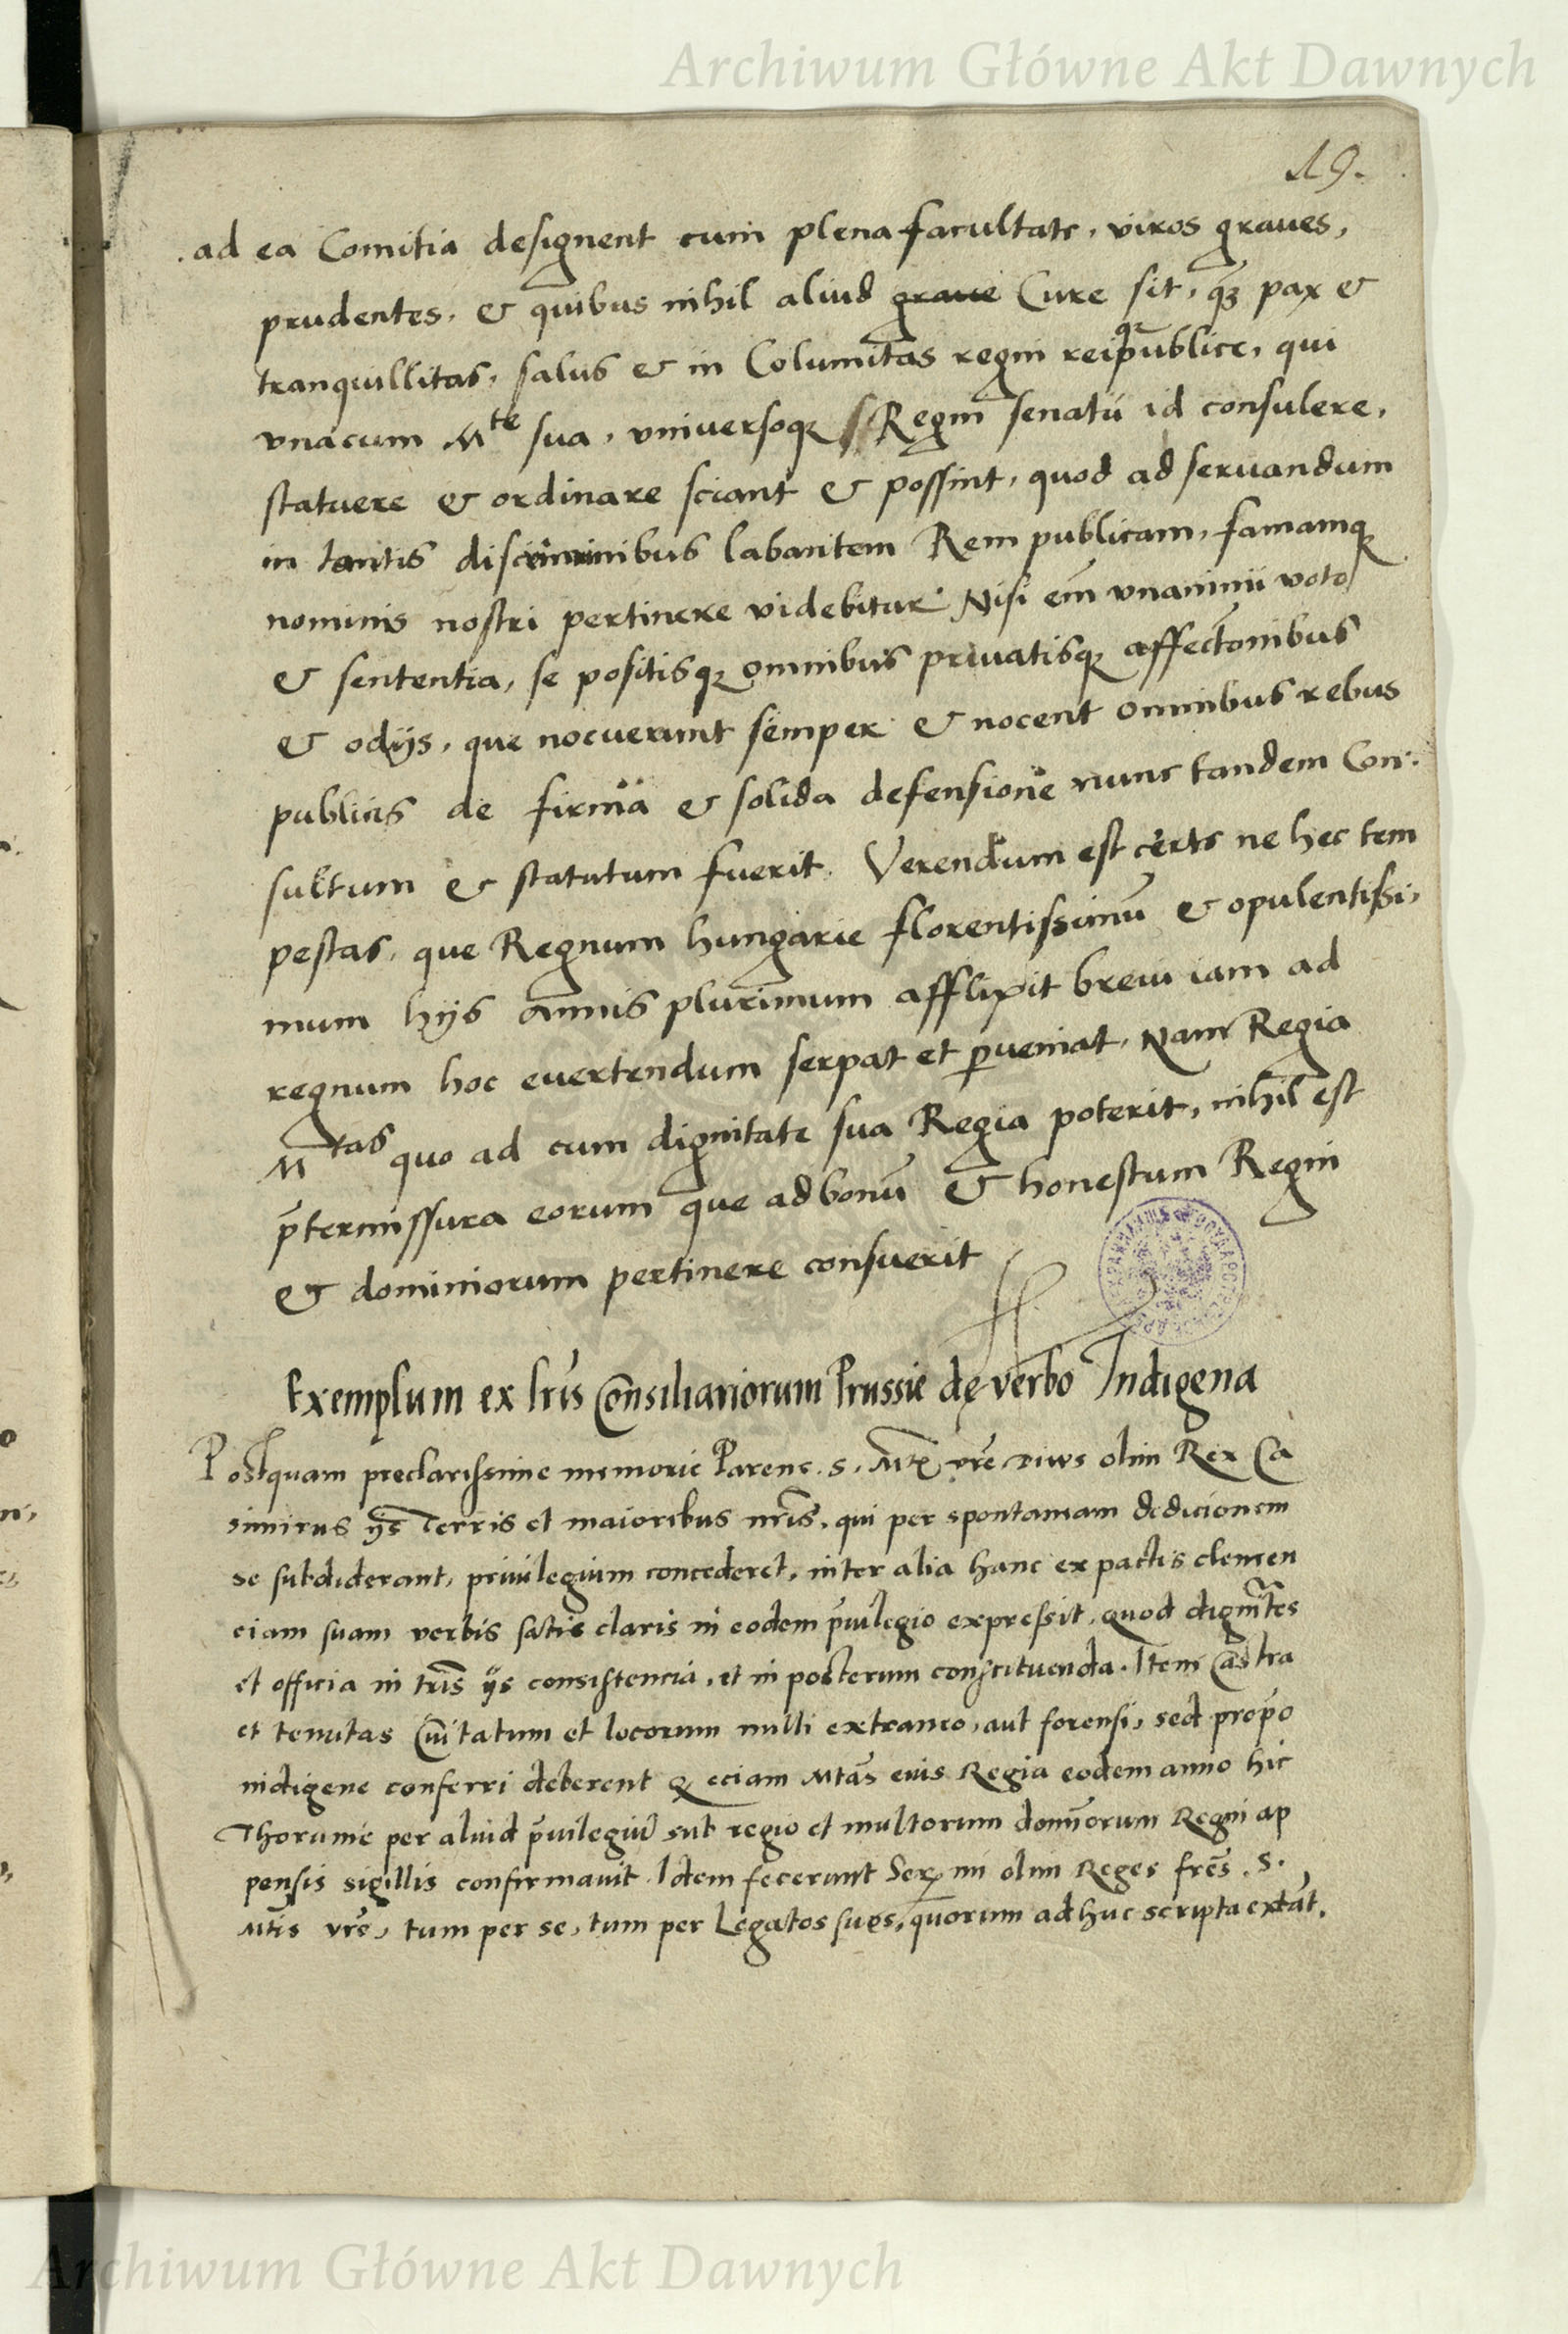 Archiwum Główne Akt Dawnych
19.
ad ea Comitia designent cum plena facultate, viros graues,
prudentes, & quibus nihil aliud graue Cure sit, q̃3 pax &
tranquillitas, salus & in Columitas regni reiq̃publice, qui
vnacum Mte sua, vniversoq; Regni senatu id consulere,
statuere & ordinare sciant & possint, quod ad seruandum
in tantis discriminibus labantem Rem publicam, famamq;
nominis nostri pertinere videbitur. Nisi em̃ vnanimi voto
& sententia, se positisq; omnibus priuatisq; affectonibus
& odijs, que nocuerunt semper & nocent omnibus rebus
publicis de firma & solida defensione nunc tandem Con-
sultum & statutum fuerit. Verendum est certe ne hec tem
pestas, que Regnum hungarie florentissimũ & opulentissi,
mum hijs annis plurimum afflixit breui iam ad
regnum hoc euertendum serpat et ꝑueniat, Nam Regia
Mtas quo ad cum dignitate sua Regia poterit, nihil est
p̃termissura eorum que ad bonũ & honestum Regni
& dominiorum pertinere consuerit
Exemplum ex lr̃is Consiliariorum Prussie de verbo Indigena
Postquam preclarissime memorie Parens. S. Mtis vr̃e Diuus olim Rex Ca
simirus ijs Terris et maioribus nr̃is, qui per spontaneam dedicionem
se subdiderant, priuilegium concederet, inter alia hanc ex pactis clemen
ciam suam verbis satis claris in eodem p̃uilegio expressit, quod dignitates
et officia in tr̃is ijs consistencia, et in posterum constituenda. Item Castra
et tenutas Ciuitatum et locorum nulli extraneo, aut forensi, sed prop̃o
indigene conferri deberent q eciam Mtas eius Regia eodem anno hic
Thorunie per aliud p̃uilegiũ sub regio et multorum dominorum Regni ap
pensis sigillis confirmauit. Idem fecerunt Ser̃mi olim Reges fr̃es. S.
Mtis vr̃e, tum per se, tum per Legatos suos, quorum adhuc scripta extãt.
Archiwum Główne Akt Dawnych